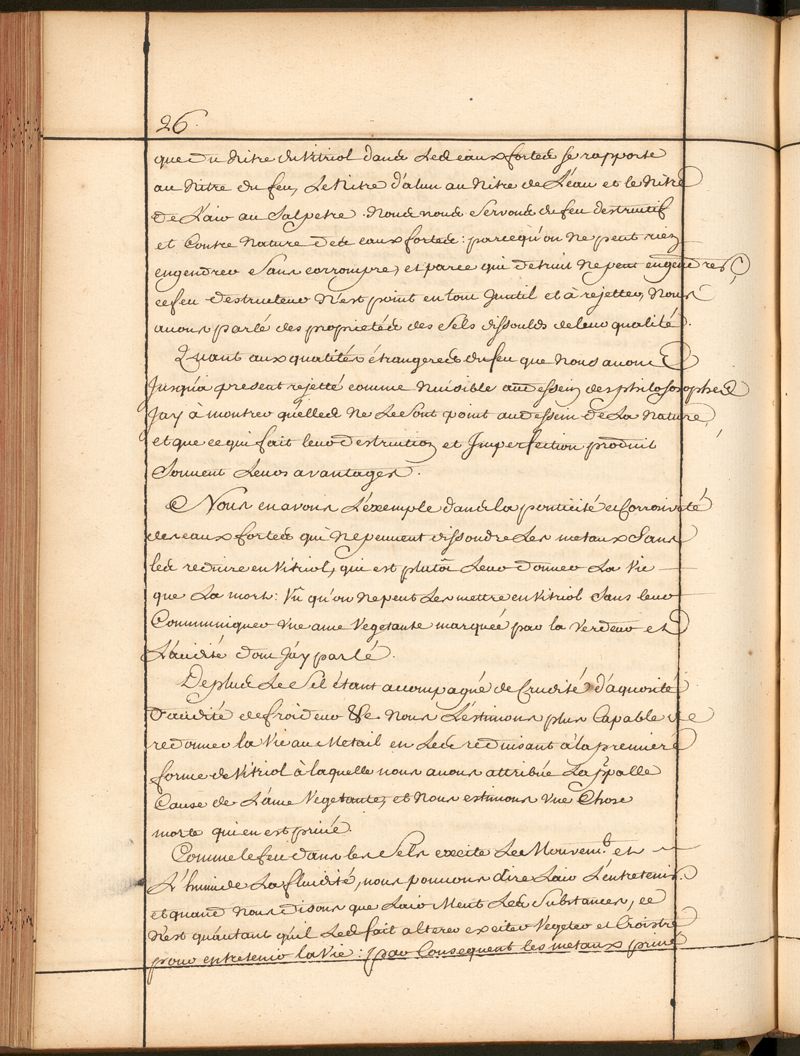 26.
que du Nitre du Vitriol dans Les eaux fortes se rapporte
au Nitre du feu, Le Nitre d'alun au Nitre de L'eau et le Nitre
de L'air au Salpetre. Nous nous Servons du feu destructif
et Contre Nature des eaux fortes: parcequ'on ne peut rien
engendrer Sans corrompre, et parce qui detruit ne peut engendrer
ce feu destructeur N'est point en tout Inutil et à rejetter, Nous
avons parlé des proprietés des Sels dissouds de leur qualité.
Quant aux qualités étrangeres du feu que Nous avons
Jusqu'a present rejetté comme Nuisible au dessein des philosophes
Jay à montrer qu'elles Ne Le Sont point au dessein de La Nature,
et que ce qui fait leur destruction et Imperfection produit
Souvent Leurs avantages.
Nous en avons L'exemple dans la ponticité et Corrosivité
des eaux fortes qui Ne peuvent dissoudre Les metaux Sans
les reduire en Vitriol, qui est plutôt Leur donner La Vie
que La mort: Vû qu'on Ne peut Les mettre en Vitriol Sans leur
Communiquer Une ame Vegetante marquée par la Verdeur et
L'acidité dont J'ay parlé.
De plus Le Sel étant accompagné de Crudité d'aquosité
D'acidité de froideur &c. Nous L'estimons plus Capable de
redonner la Vie au Metail en Les reduisant à la premiere
forme de Vitriol à laquelle nous avons attribüé La ppalle
Cause de L'ame Vegetante, et Nous estimons Une Chose
morte qui en est privé.
Comme le feu dans les Sels excite Le Mouvemt. et
L'humide La fluidité, nous pouvons dire L'air L'entretenir.
et quand Nous disons que L'air Meut Les Substances, ce
N'est qu'autant qu'il Les fait alterer exciter Vegeter et Croistre
pour entretenir la Vie: par Consequent les metaux privé